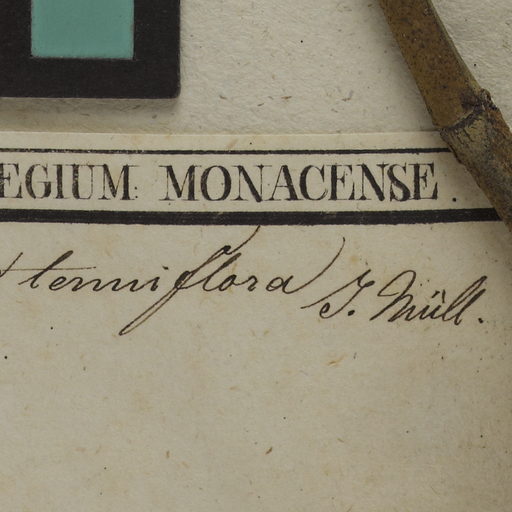 EGIUM MONACENSE.
tenuiflora J. Müll.